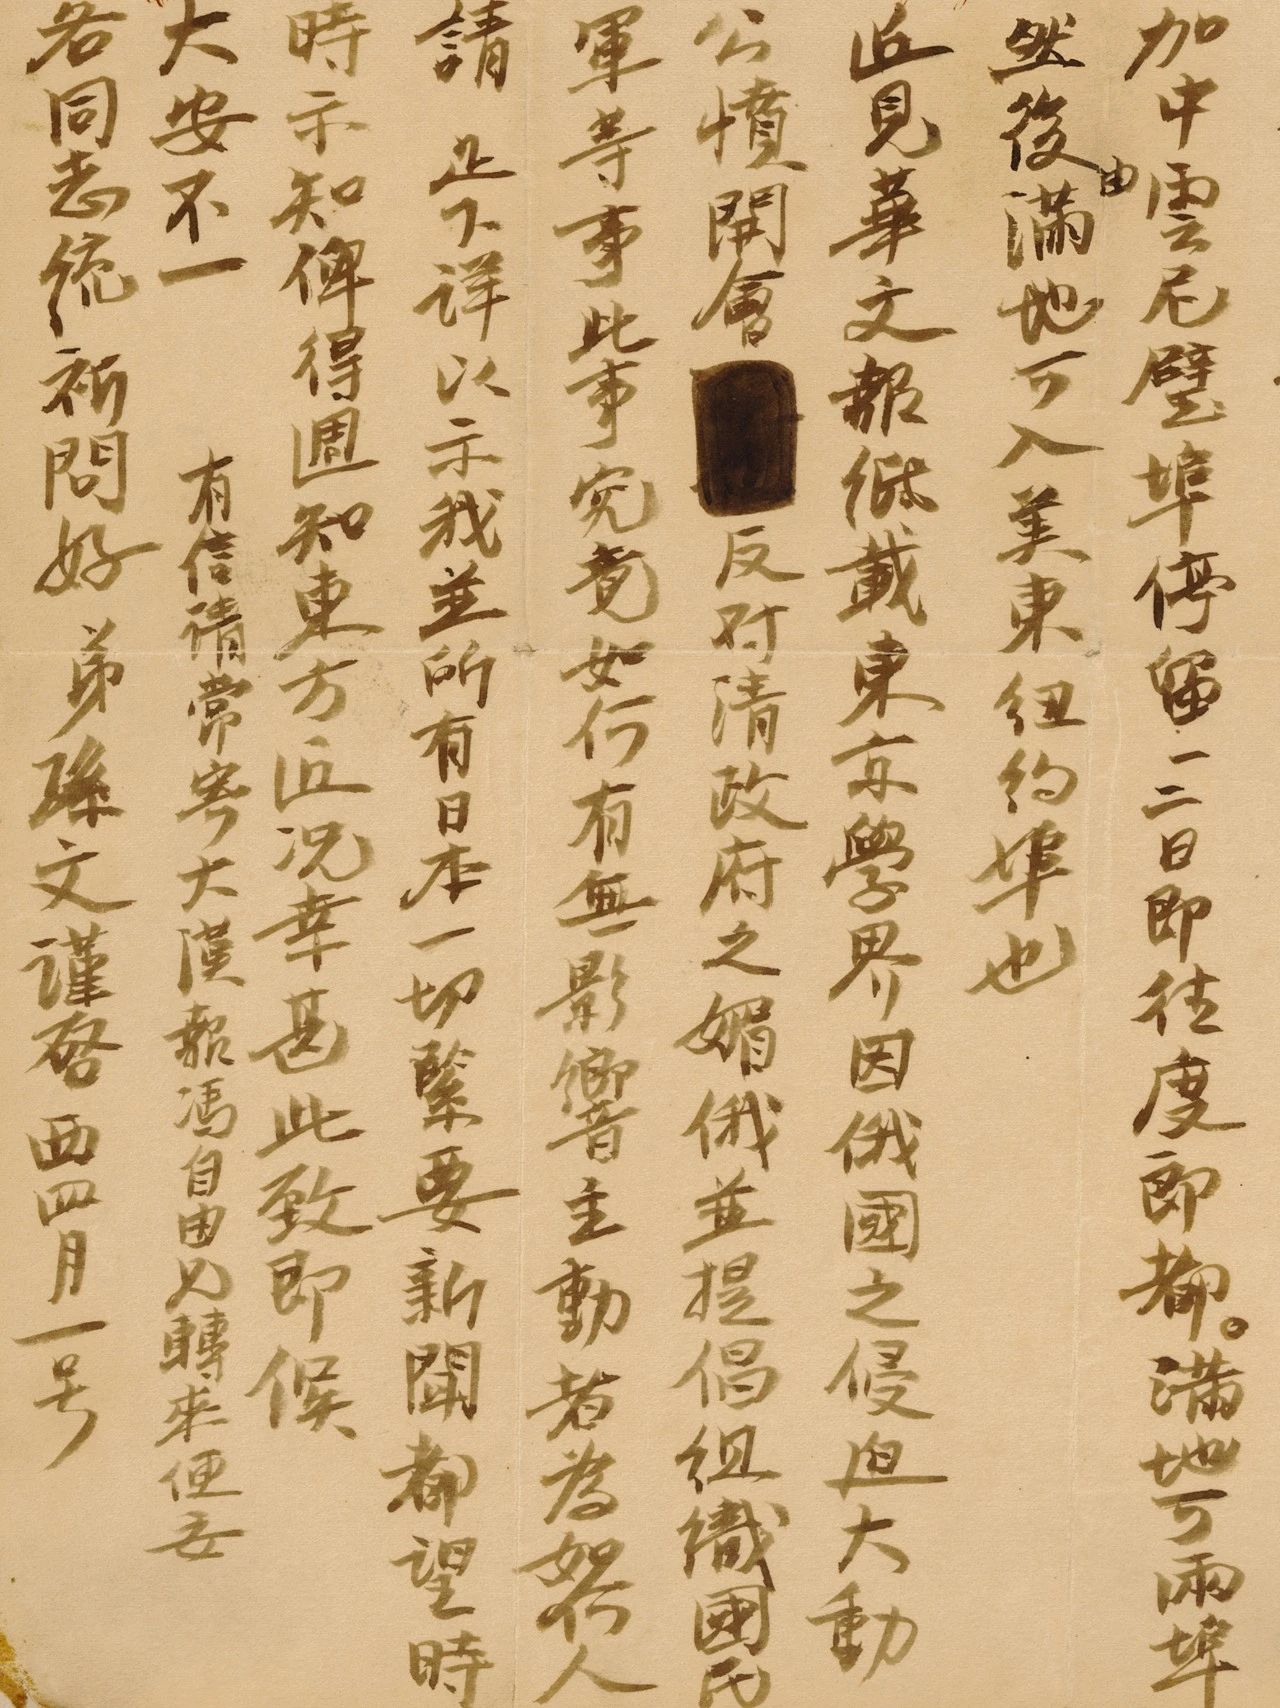 加中雲尼壁埠停留一二日即往度郎都。滿地可兩埠
然後由滿地可入美東紐約埠也
近見華文報紙載東京學界因俄國之侵迫大動
公憤開會反对清政府之媚俄並提倡組織國民
軍等事此事究竟如何有無影響主動者為如何人
請 足下详以示我並所有日本一切緊要新聞都望時
時示知俾得週知東方近况幸甚此致即候
大安不一
有信请常寄大漢報馮自由兄轉來便妥
各同志統祈問好 弟孫文謹啓 西四月一号